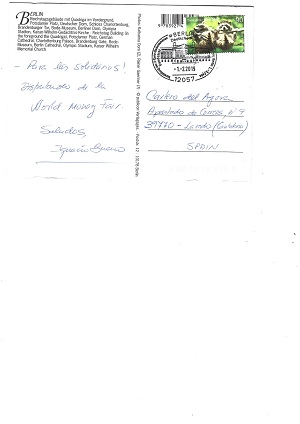 BERLIN
Reichstagsgebäude mit Quadriga im Vordergrund,
Potsdamer Platz, Deutscher Dom, Schloss Charlottenburg,
Brandenburger Tor, Bode-Museum, Berliner Dom, Olympia
Stadion, Kaiser-Wilhelm-Gedächtnis-Kirche - Reichstag Building (in
the foreground the Quadriga), Potsdamer Platz, German
Cathedral, Charlottenburg Palace, Brandenburg Gate, Bode-
Museum, Berlin Cathedral, Olympic Stadium, Kaiser Wilhelm
Memorial Church
- Para los solidarios!
de la
World Money Fair.
Saludos,
Ignacio
BERLIN
12057
Cartero del Agora
Apartado de Correos nº 7
39770 - Laredo (Cantabria)
SPAIN